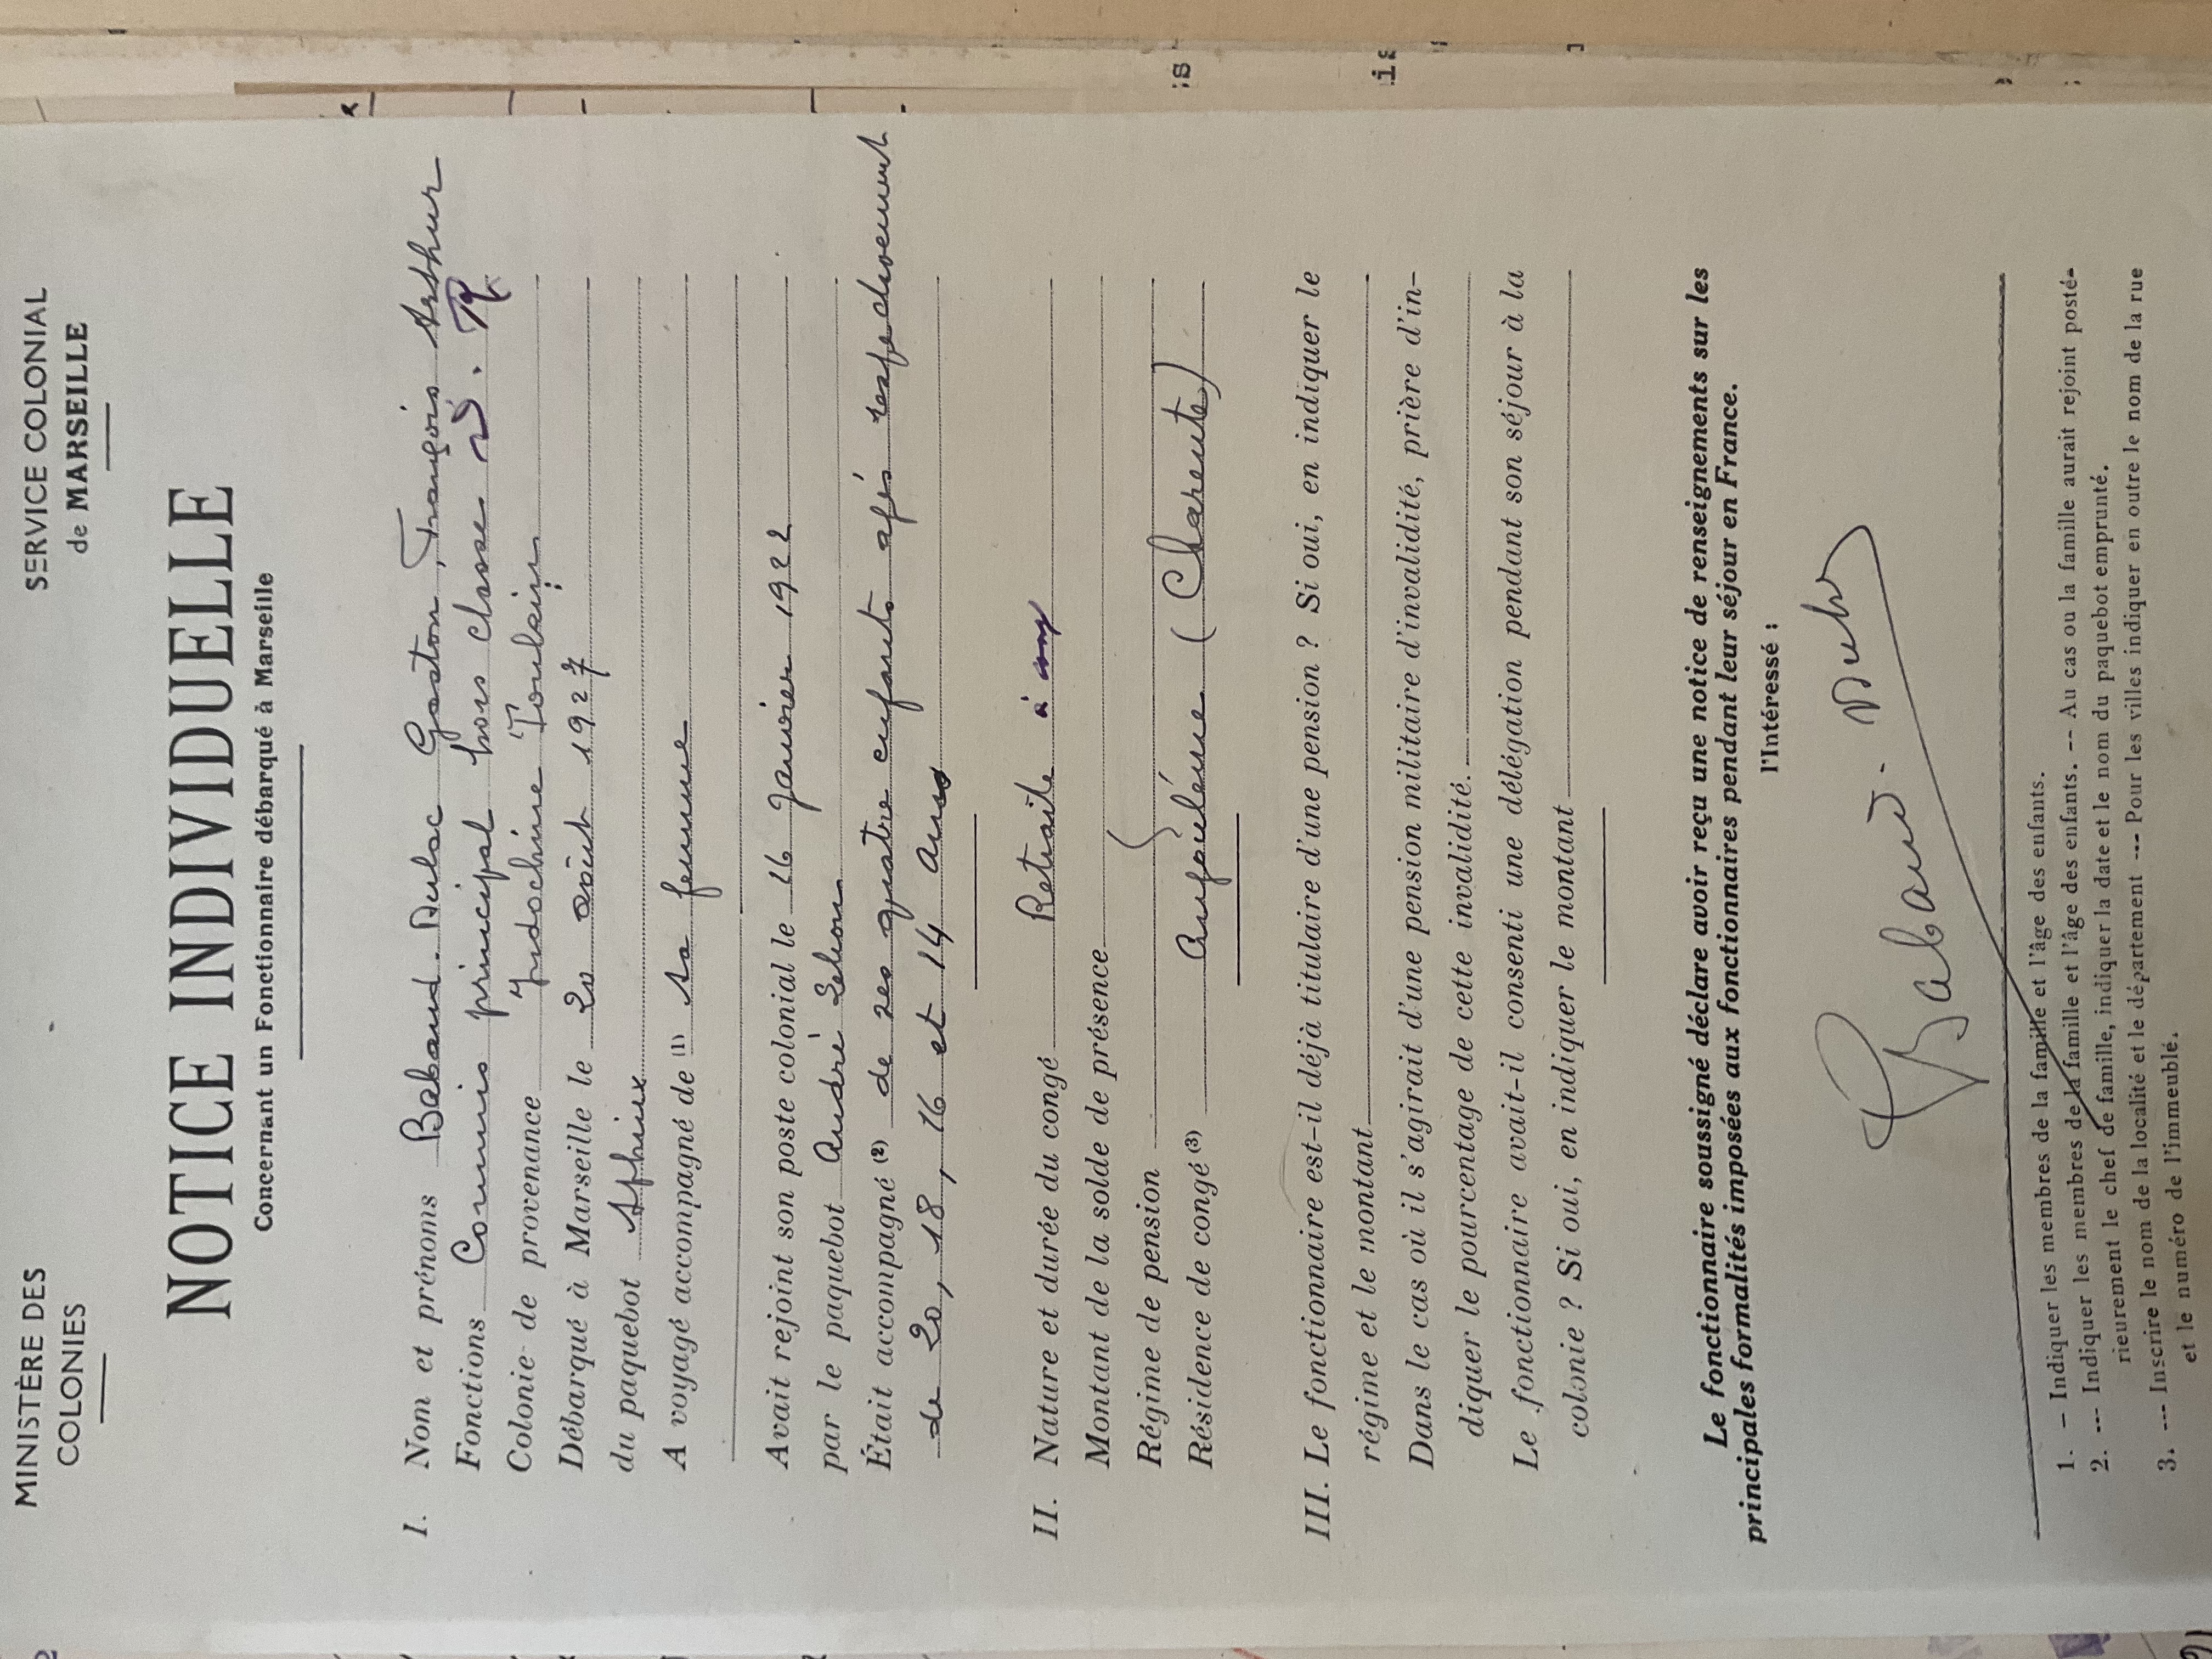 MINISTÈRE DES
COLONIES
SERVICE COLONIAL
de MARSEILLE
NOTICE INDIVIDUELLE
Concernant un Fonctionnaire débarqué à Marseille
I. Nom et prénoms Baband-Dulac Gaston, François Arthur
Fonctions Commis principal hors classe
Colonie de provenance Indochine Tonkin
Débarqué à Marseille le 20 août 1927
du paquebot Sphinx
A voyagé accompagné de (1) sa femme
Avait rejoint son poste colonial le 16 Janvier 1922
par le paquebot André Lebon
Était accompagné (2) de ses quatre enfants agés respectivement
de 20, 18, 16 et 14 ans
II. Nature et durée du congé Retraite à
Montant de la solde de présence
Régime de pension
Résidence de congé (3) Angoulême (Charente)
III. Le fonctionnaire est-il déjà titulaire d'une pension ? Si oui, en indiquer le
régime et le montant
Dans le cas où il s'agirait d'une pension militaire d'invalidité, prière d'in-
diquer le pourcentage de cette invalidité.
Le fonctionnaire avait-il consenti une délégation pendant son séjour à la
colonie ? Si oui, en indiquer le montant
Le fonctionnaire soussigné déclare avoir reçu une notice de renseignements sur les
principales formalités imposées aux fonctionnaires pendant leur séjour en France.
l'Intéressé :
1. — Indiquer les membres de la famille et l'âge des enfants.
2. --- Indiquer les membres de la famille et l'âge des enfants. -- Au cas ou la famille aurait rejoint posté-
rieurement le chef de famille, indiquer la date et le nom du paquebot emprunté.
3. --- Inscrire le nom de la localité et le département --- Pour les villes indiquer en outre le nom de la rue
et le numéro de l'immeublé.